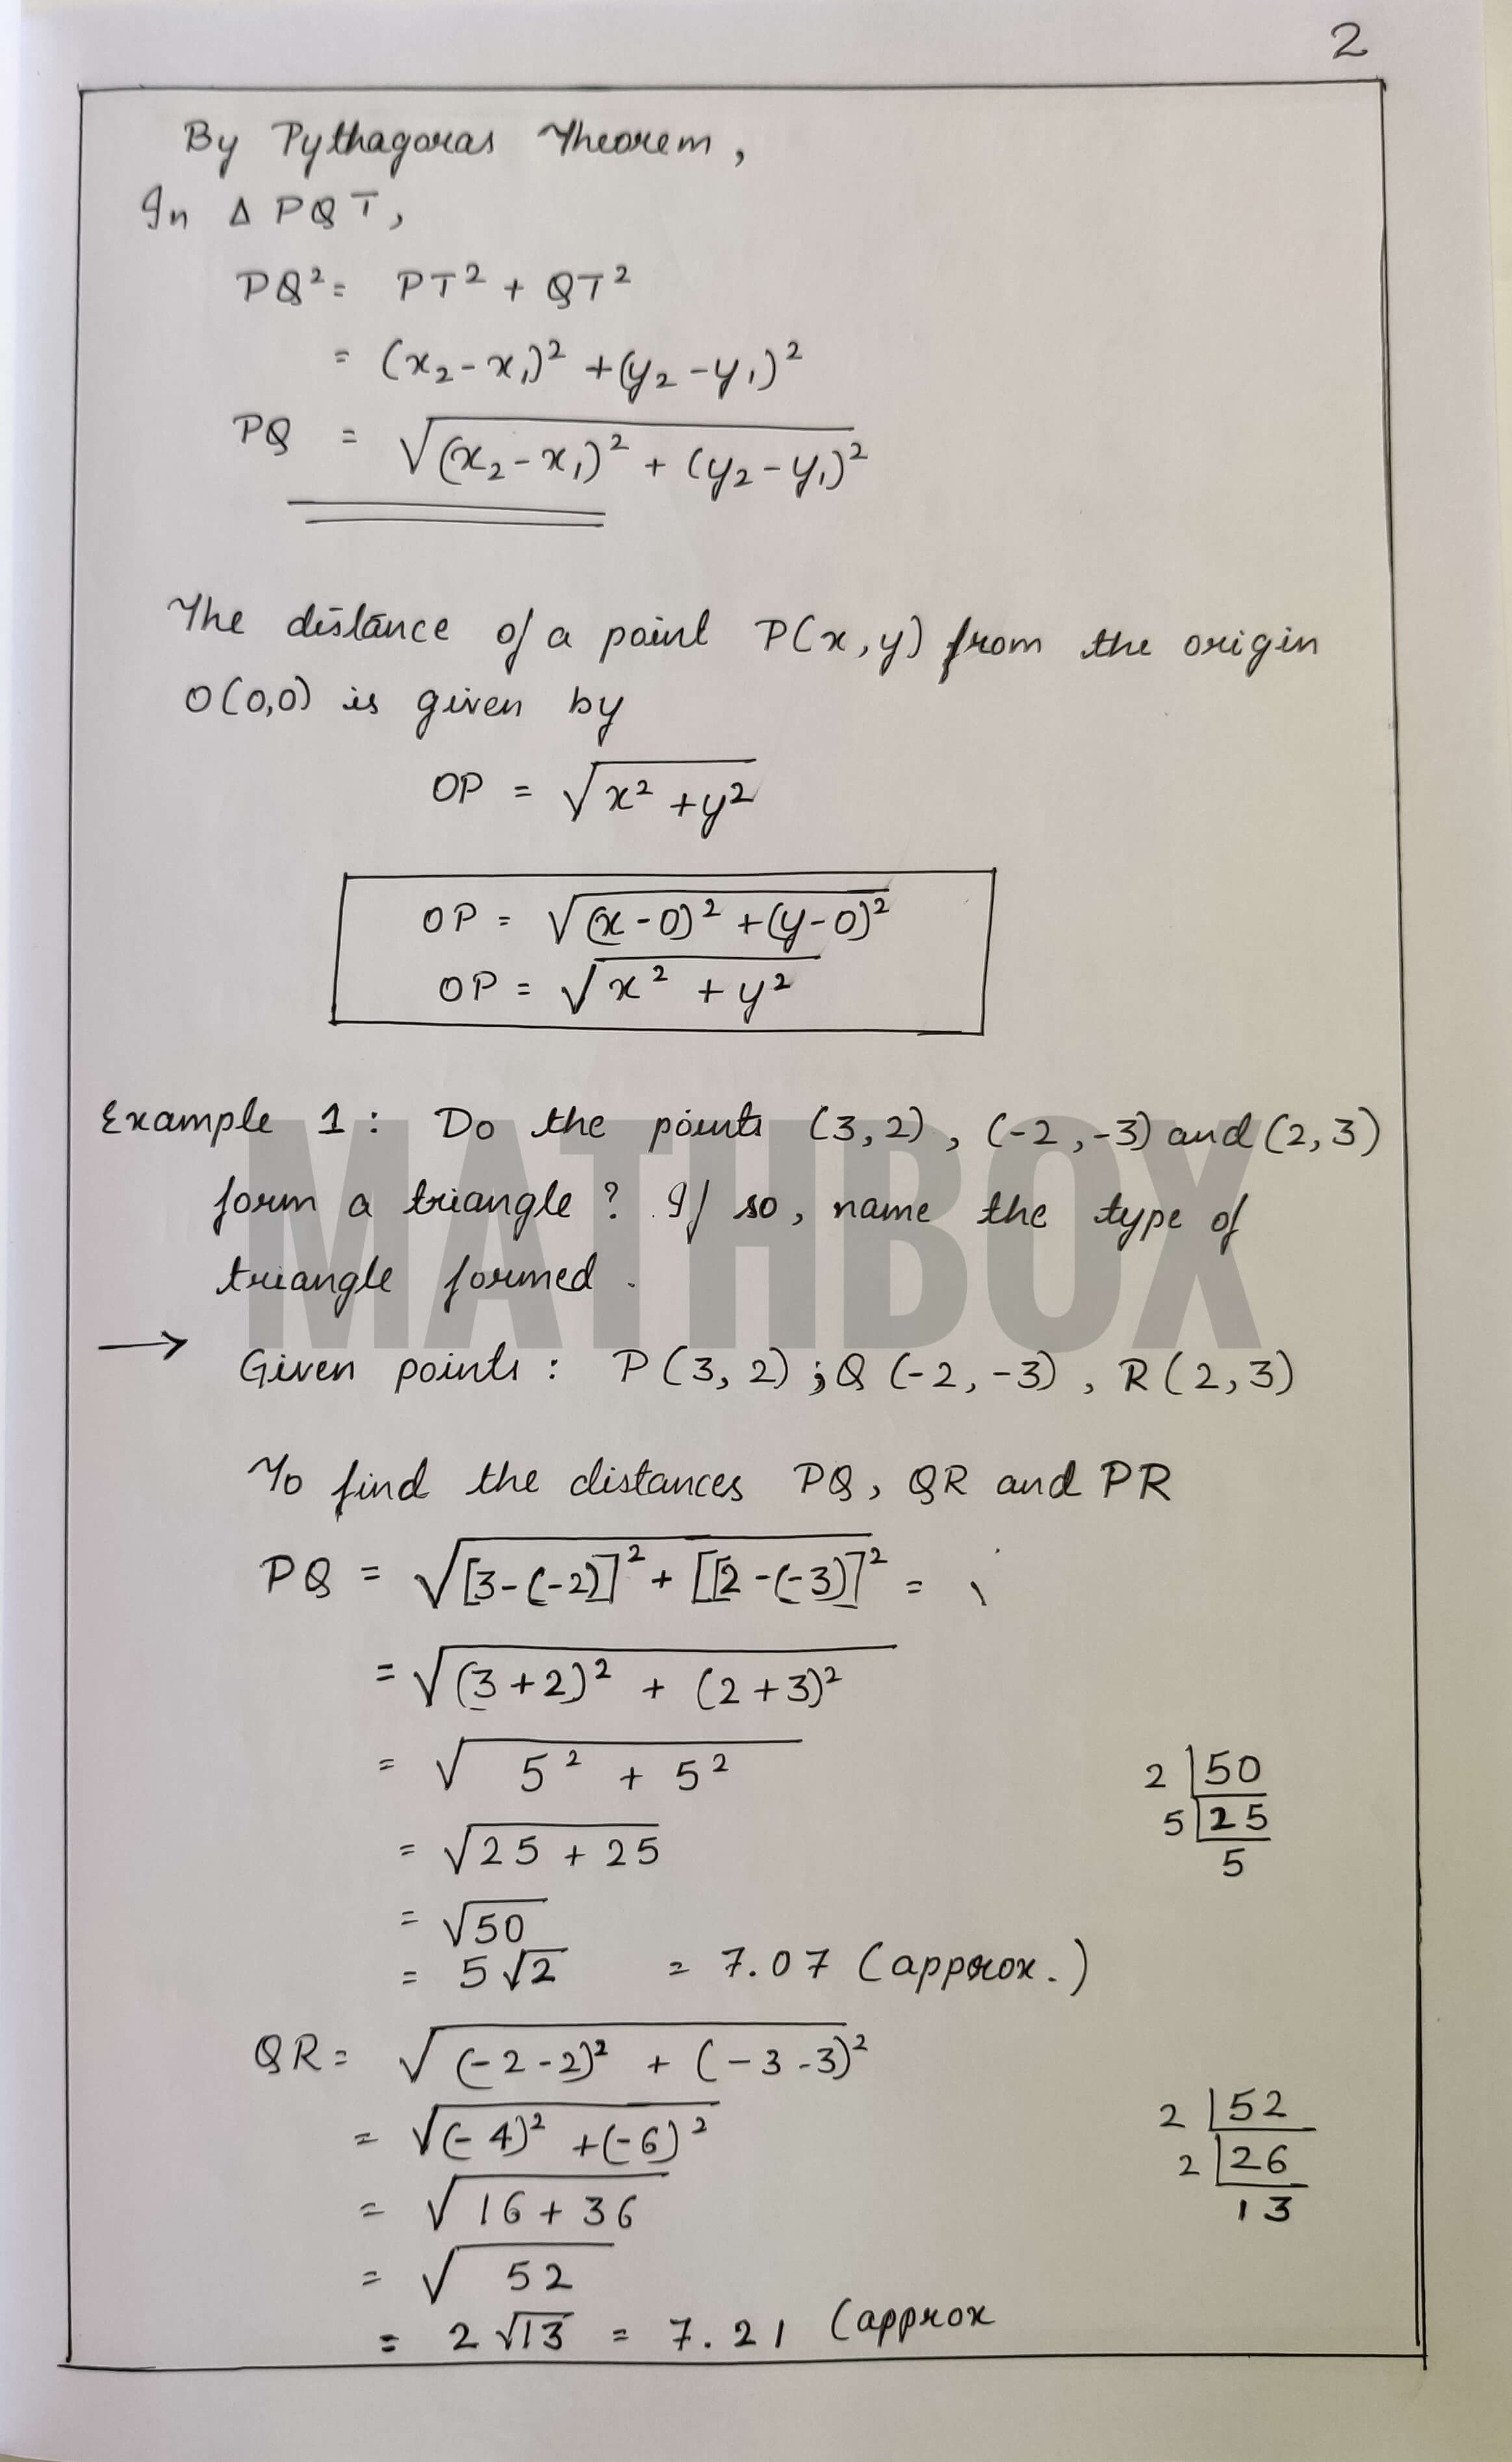 2
By Pythagoras Theorem,
In Δ PQT,
PQ² = PT² + QT²
= (x₂ - x₁)² + (y₂ - y₁)²
PQ = √(x₂ - x₁)² + (y₂ - y₁)²
The distance of a point P(x, y) from the origin
O(0,0) is given by
OP = √x² + y²
OP = √(x - 0)² + (y - 0)²
OP = √x² + y²
Example 1 : Do the points (3, 2), (-2, -3) and (2, 3)
form a triangle? If so, name the type of
triangle formed.
MATHBOX
→ Given points : P (3, 2) ; Q (-2, -3) , R (2, 3)
To find the distances PQ, QR and PR
PQ = √[3-(-2)]² + [[2-(-3)]² =
= √(3+2)² + (2+3)²
= √5² + 5²
2 | 50
5 | 25
5
= √25 + 25
= √50
= 5√2 = 7.07 (approx.)
QR = √(-2-2)² + (-3-3)²
= √(-4)² + (-6)²
2 | 52
2 | 26
13
= √16 + 36
= √52
= 2√13 = 7.21 (approx